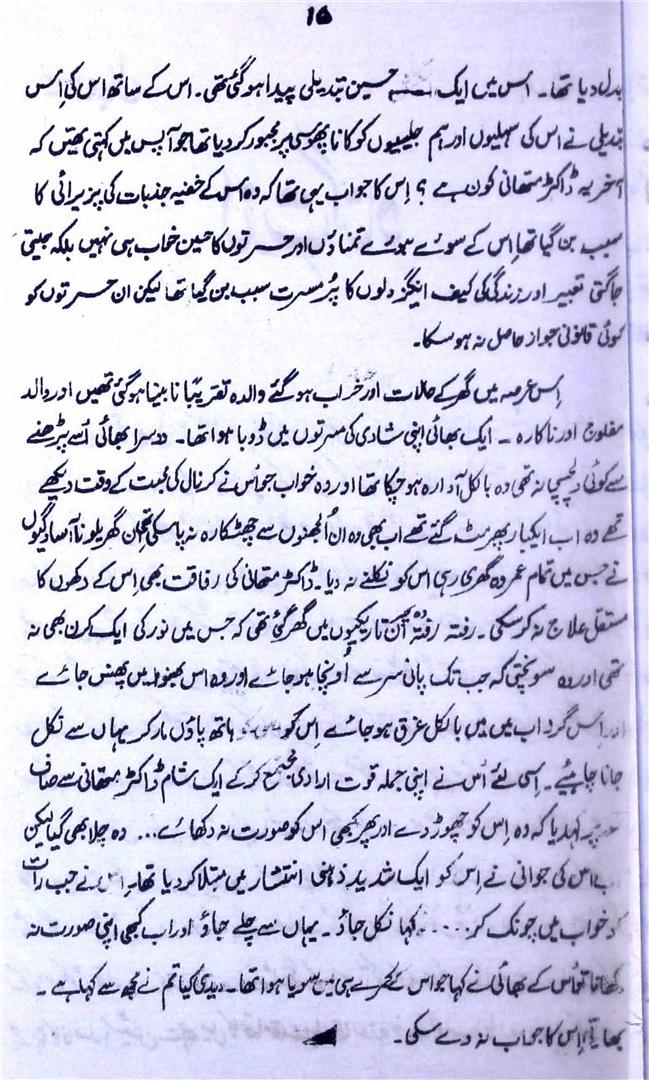 ۱۵
بدل دیا تھا۔ اس میں ایک حسین تبدیلی پیدا ہو گئی تھی۔ اس کے ساتھ اس کی اِس
تبدیلی نے اس کی سہلیوں اور ہم جلیسوں کو کانا پھوسی پر مجبور کر دیا تھا جو آپس میں کہتی تھیں کہ
آخر یہ ڈاکٹر متھانی کون ہے؟ اِس کا جواب یہی تھا کہ وہ اس کے خفیہ جذبات کی پزیرائی کا
سبب بن گیا تھا اِس کے سوئے ہوئے تمناؤں اور حسرتوں کا حسین خواب ہی نہیں بلکہ جیتی
جاگتی تعبیر اور زندگی کی کیف انگیز دلوں کا پُر مسرت سبب بن گیا تھا لیکن ان حسرتوں کو
کوئی قانونی جواز حاصل نہ ہو سکا۔
اِس عرصہ میں گھر کے حالات اور خراب ہو گئے والدہ تقریباً نابینا ہو گئی تھیں اور والد
مفلوج اور ناکارہ۔ ایک بھائی اپنی شادی کی مسرتوں میں ڈوبا ہوا تھا۔ دوسرا بھائی اُسے پڑھنے
سے کوئی دلچسپی نہ تھی وہ بالکل آوارہ ہو چکا تھا اور وہ خواب جو اُس نے کرنال کی محبت کے وقت دیکھے
تھے وہ اب ایکبار پھر مٹ گئے تھے اب بھی وہ ان اُلجھنوں سے چھٹکارہ نہ پا سکی تھی ان گھریلو نا آسودگیوں
نے جس میں تمام عمر وہ گھری رہی اس کو نکلنے نہ دیا۔ ڈاکٹر متھانی کی رفاقت بھی اِس کے دکھوں کا
مستقل علاج نہ کر سکی۔ رفتہ رفتہ وہ پھر اُن تاریکیوں میں گھر گئی تھی کہ جس میں نور کی ایک کرن بھی نہ
تھی اور وہ سونچتی کہ جب تک پانی سر سے اُونچا ہو جائے اور وہ اس بھنور میں پھنس جائے
اور اِس گرداب میں میں بالکل غرق ہو جائے اِس کو ہاتھ پاؤں مار کر یہاں سے نکل
جانا چاہیئے۔ اِسی لئے اُس نے اپنی جملہ قوت ارادی مجتمع کر کے ایک شام ڈاکٹر متھانی سے صاف
طور پر کہدیا کہ وہ اِس کو چھوڑ دے اور پھر کبھی اس کو صورت نہ دکھائے... وہ چلا بھی گیا لیکن
اب اس کی جوانی نے اِس کو ایک شدید ذہنی انتشار میں مبتلا کر دیا تھا۔ اِس نے جب رات
کو خواب میں چونک کر..... کہا نکل جاؤ۔ یہاں سے چلے جاؤ اور اب کبھی اپنی صورت نہ
دکھانا تو اُس کے بھائی نے کہا جو اس کے کمرے ہی میں سویا ہوا تھا۔ دیدی کیا تم نے مجھ سے کہا ہے۔
بھاپا اِس کا جواب نہ دے سکی۔